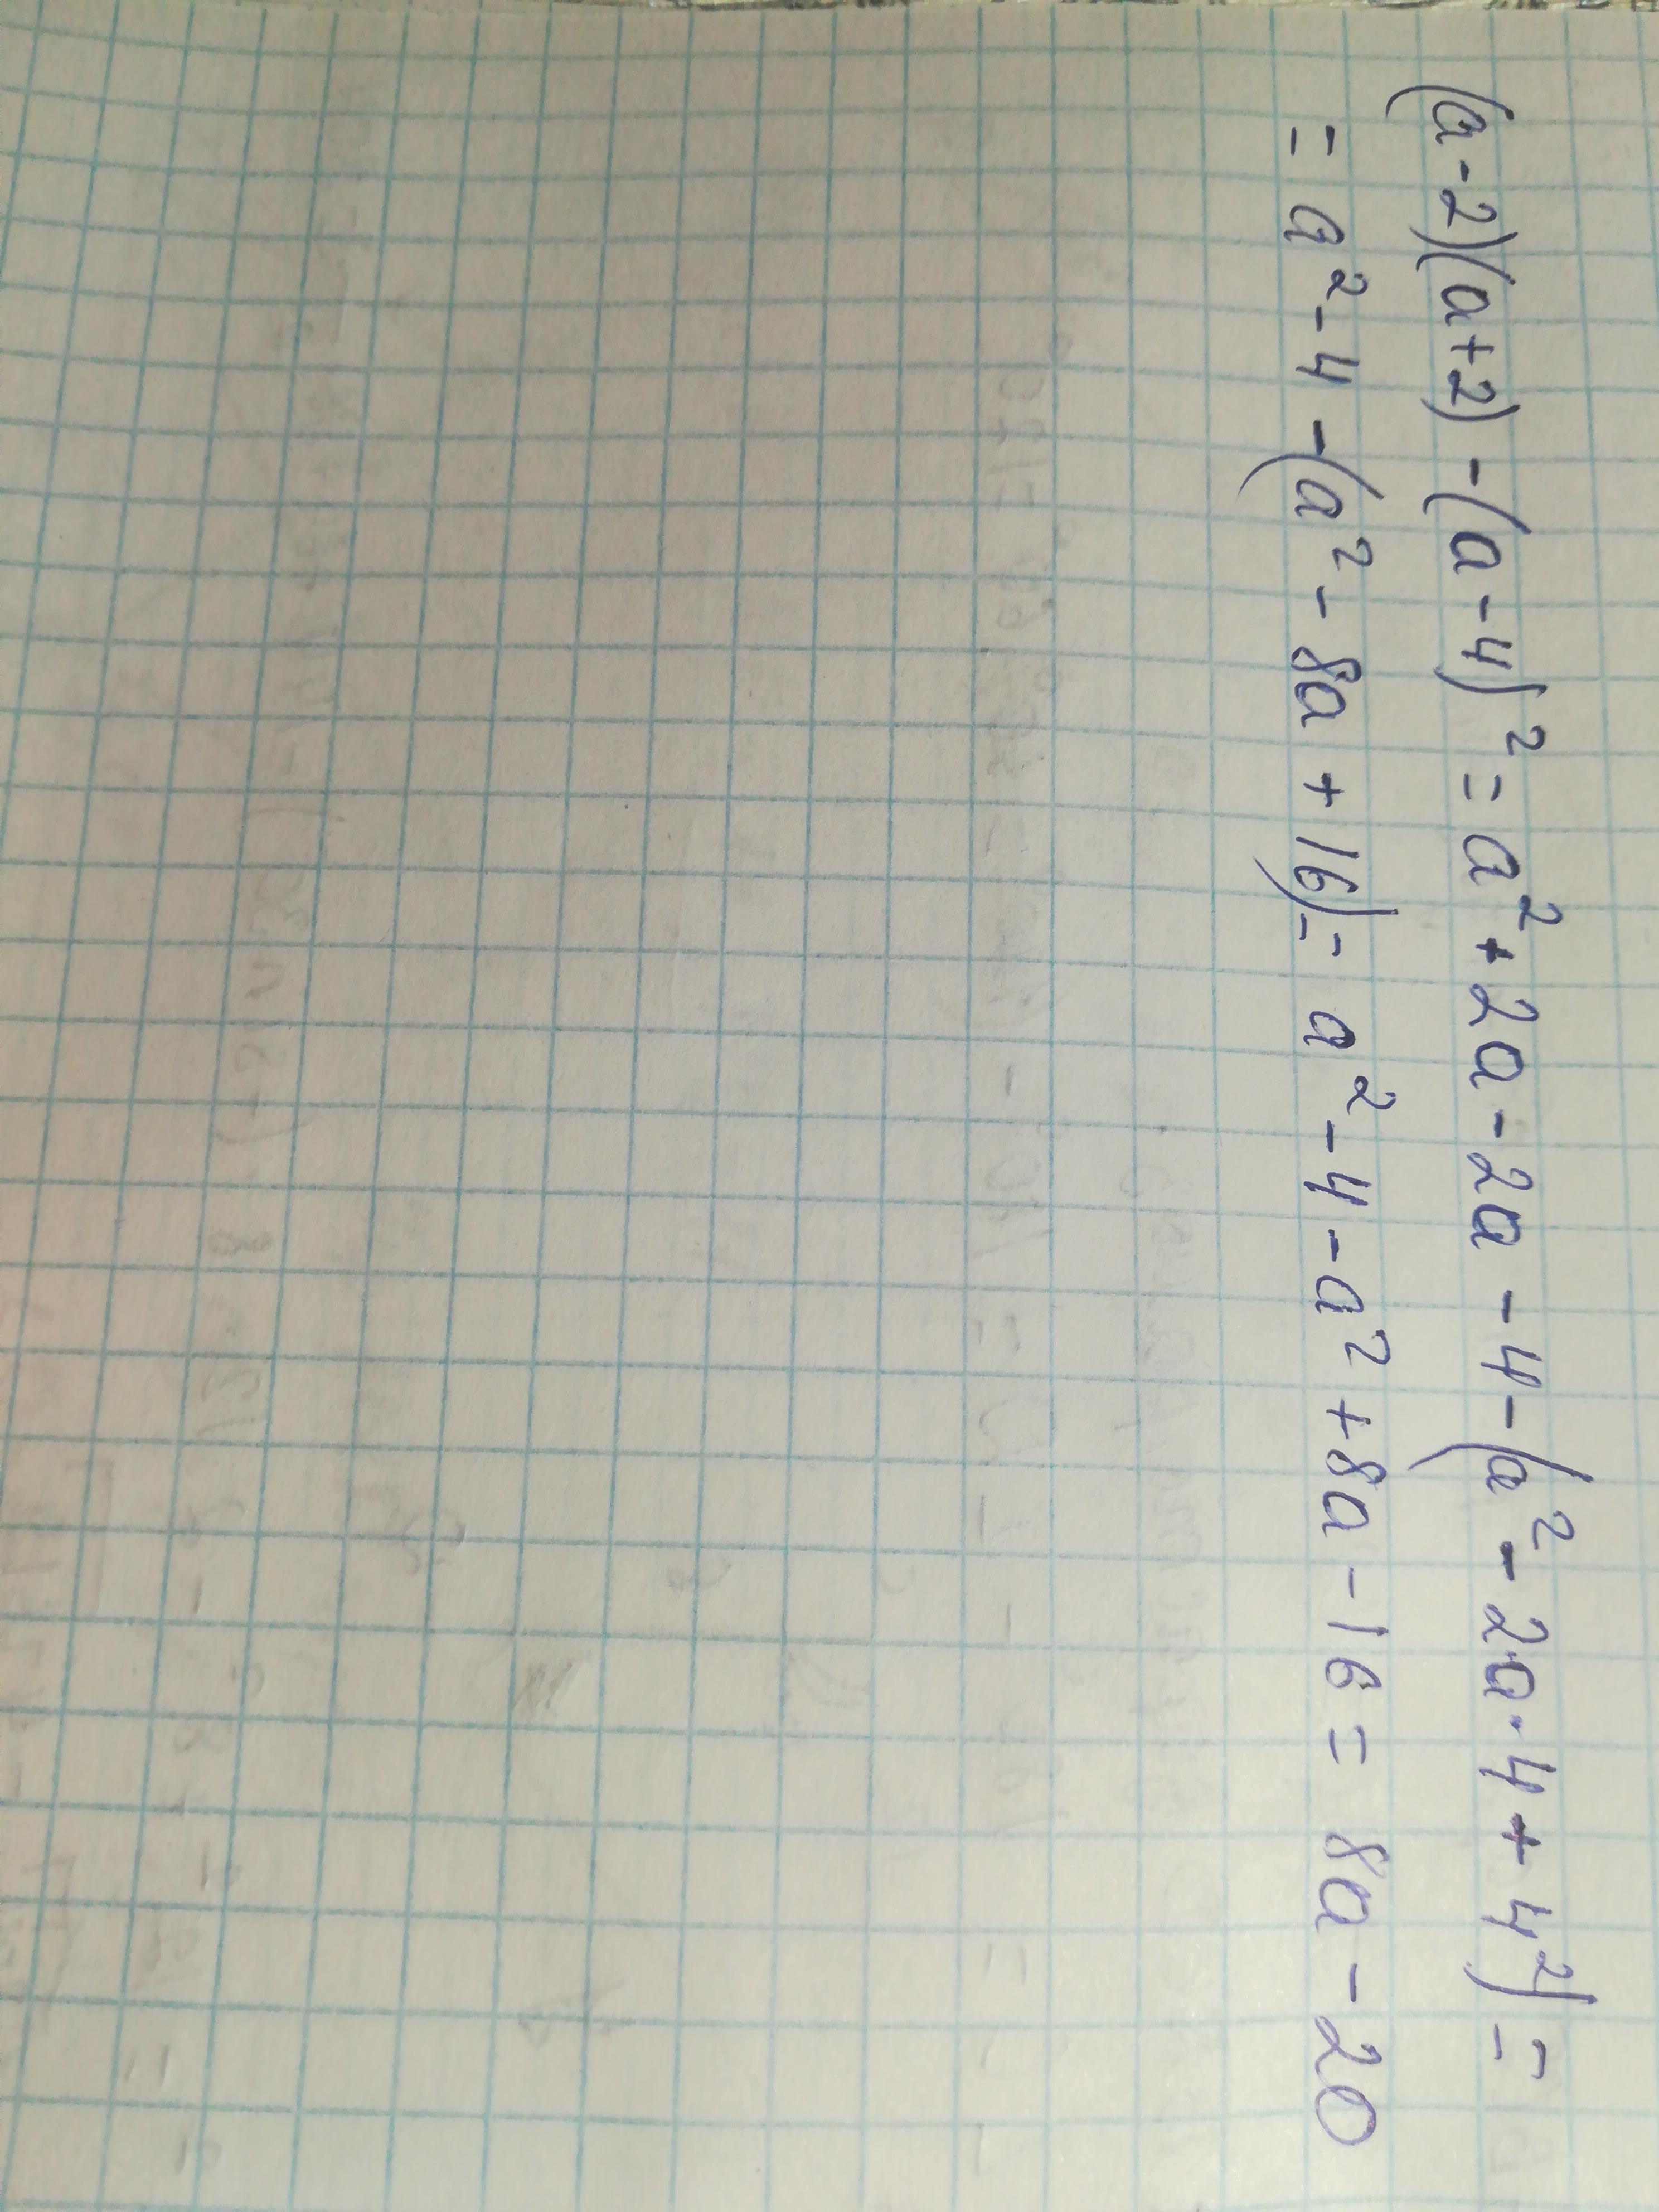 (a-2)(a+2)-(a-4)²=a²+2a-2a-4-(a²-2a·4+4²)=
=a²-4-(a²-8a+16)=a²-4-a²+8a-16=8a-20